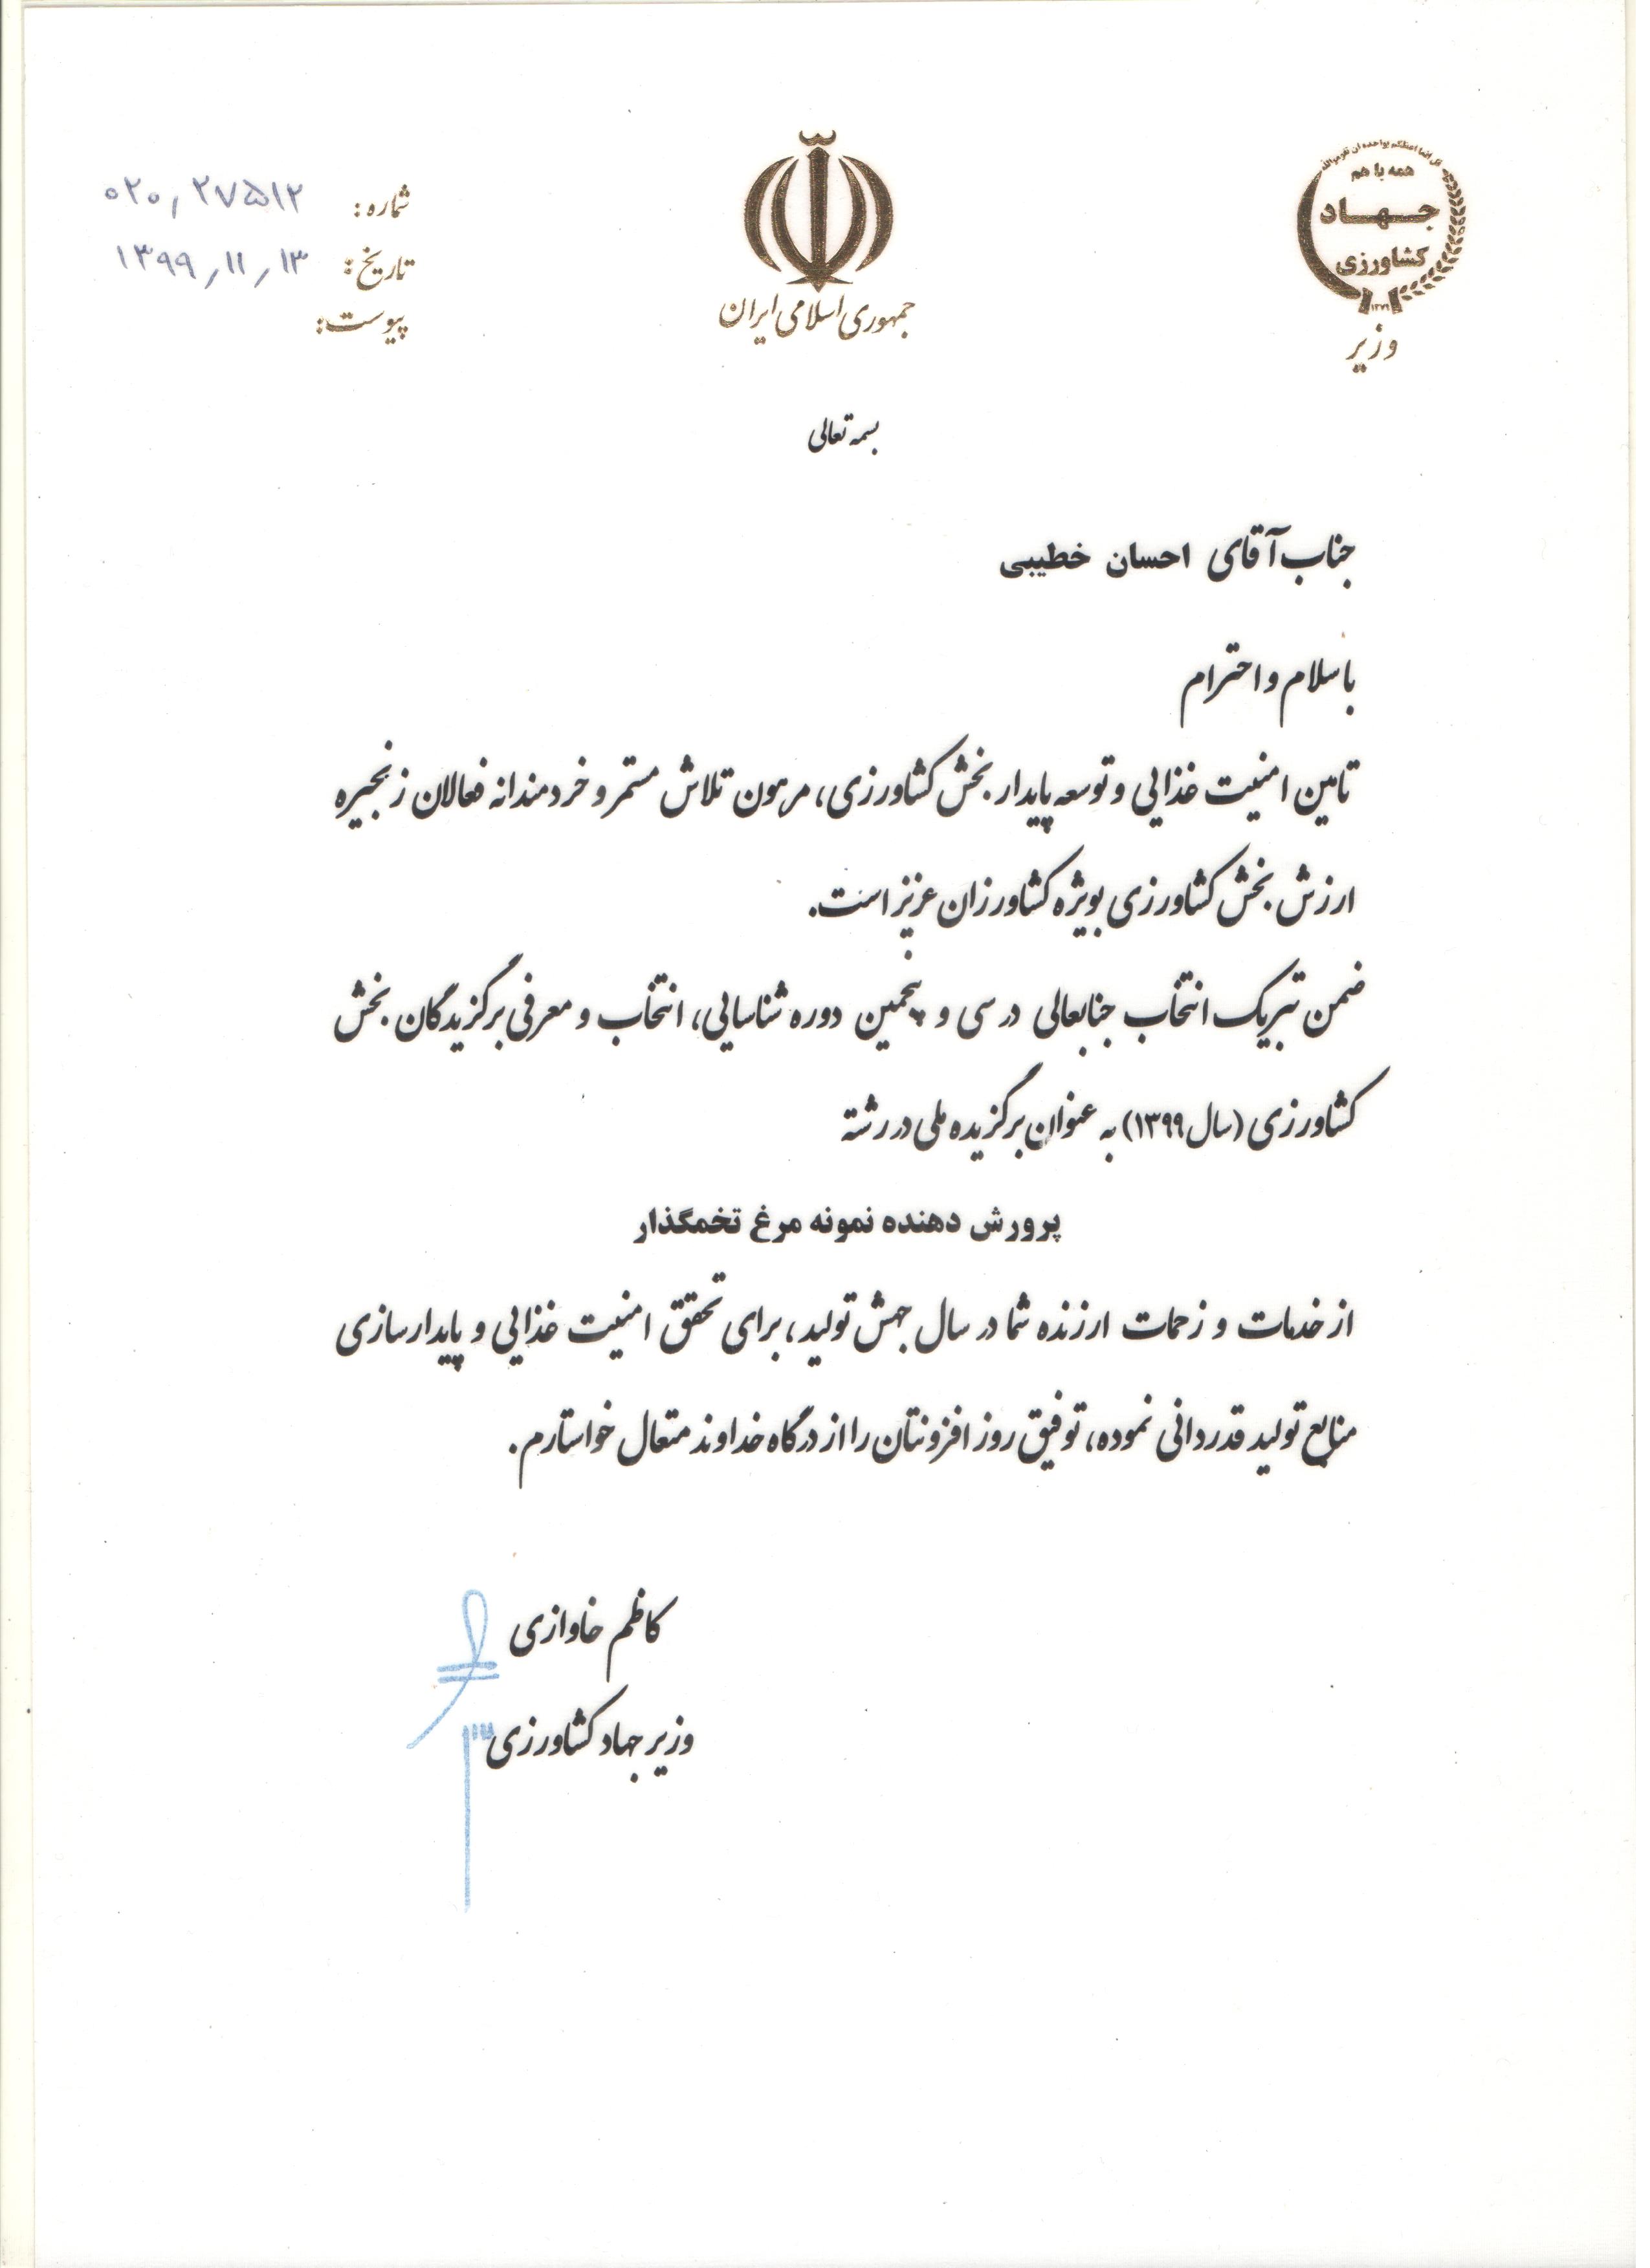 همه با هم
جهاد
کشاورزی
۱۳۷۹
وزیر
جمهوری اسلامی ایران
شماره: ۰۲۰/۲۷۵۱۲
تاریخ: ۱۳۹۹/۱۱/۱۳
پیوست:
بسمه تعالی
جناب آقای احسان خطیبی
با سلام و احترام
تامین امنیت غذایی و توسعه پایدار بخش کشاورزی، مرهون تلاش مستمر و خردمندانه فعالان زنجیره
ارزش بخش کشاورزی بویژه کشاورزان عزیز است.
ضمن تبریک انتخاب جنابعالی در سی و پنجمین دوره شناسایی، انتخاب و معرفی برگزیدگان بخش
کشاورزی (سال ۱۳۹۹) به عنوان برگزیده ملی در رشته
پرورش دهنده نمونه مرغ تخمگذار
از خدمات و زحمات ارزنده شما در سال جهش تولید، برای تحقق امنیت غذایی و پایدارسازی
منابع تولید قدردانی نموده، توفیق روز افزونتان را از درگاه خداوند متعال خواستارم.
کاظم خاوازی
وزیر جهاد کشاورزی